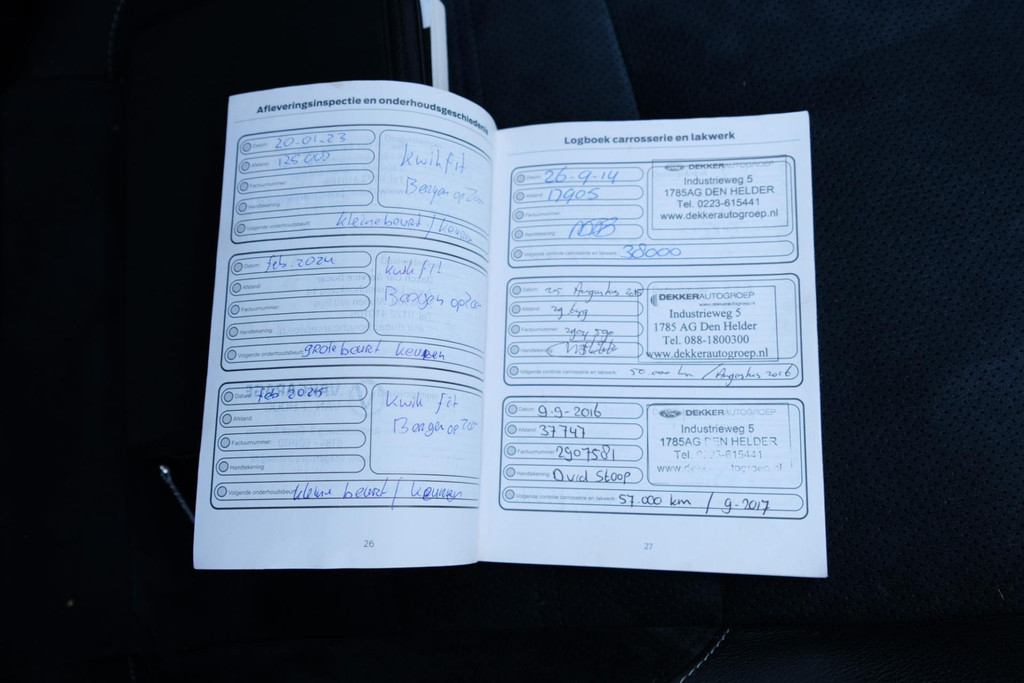 Afleveringsinspectie en onderhoudsgeschiedenis
Datum: 20-01-23
Afstand: 125 000
Factuurnummer:
Handtekening:
Kwik fit
Bergen op Zoom
Volgende onderhoudsbeurt: kleine beurt / keuren
Datum: feb. 2024
Afstand:
Factuurnummer:
Handtekening:
kwik fit
Bergen op Zoom
Volgende onderhoudsbeurt: grote beurt keuren
Datum: feb 2025
Afstand:
Factuurnummer:
Handtekening:
Kwik fit
Bergen op Zoom
Volgende onderhoudsbeurt: kleine beurt / keuren
26
Logboek carrosserie en lakwerk
Datum: 26-9-14
Afstand: 17905
Factuurnummer:
Handtekening:
DEKKERAUTOGROEP
Industrieweg 5
1785AG DEN HELDER
Tel. 0223-615441
www.dekkerautogroep.nl
Volgende controle carrosserie en lakwerk: 38000
Datum: 25 Augustus 2015
Afstand:
Factuurnummer:
Handtekening:
DEKKERAUTOGROEP
www.dekkerautogroep.nl
Industrieweg 5
1785 AG Den Helder
Tel. 088-1800300
www.dekkerautogroep.nl
Volgende controle carrosserie en lakwerk: 50.000 km / Augustus 2016
Datum: 9-9-2016
Afstand: 37747
Factuurnummer: 2907581
Handtekening: David Stoop
DEKKERAUTOGROEP
Industrieweg 5
1785AG DEN HELDER
Tel. 0223-615441
www.dekkerautogroep.nl
Volgende controle carrosserie en lakwerk: 57.000 km / 9-2017
27